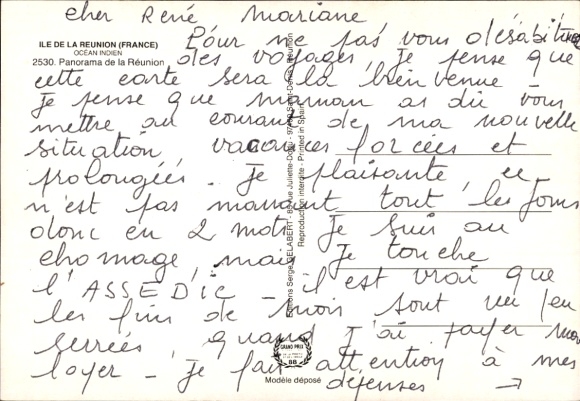 cher René Mariane
ILE DE LA REUNION (FRANCE)
OCÉAN INDIEN
2530. Panorama de la Réunion
Pour ne pas vous déshabituer
des voyages, je pense que
cette carte sera la bien venue
Je pense que maman as dû vous
mettre au courant de ma nouvelle
situation vacances forcées et
prolongées. Je plaisante, ce
n'est pas marrant tout les jours
donc en 2 mots Je suis au
chomage, mais Je touche
l'ASSEDIC - il est vrai que
les fins de mois sont un peu
serrées quand j'ai payer mon
loyer - Je fais attention à mes
dépenses →
Editions Serge GELABERT - rue Juliette-Dodu - Saint-Denis Réunion
Reproduction interdite - Printed in Spain
GRAND PRIX
88
Modèle déposé